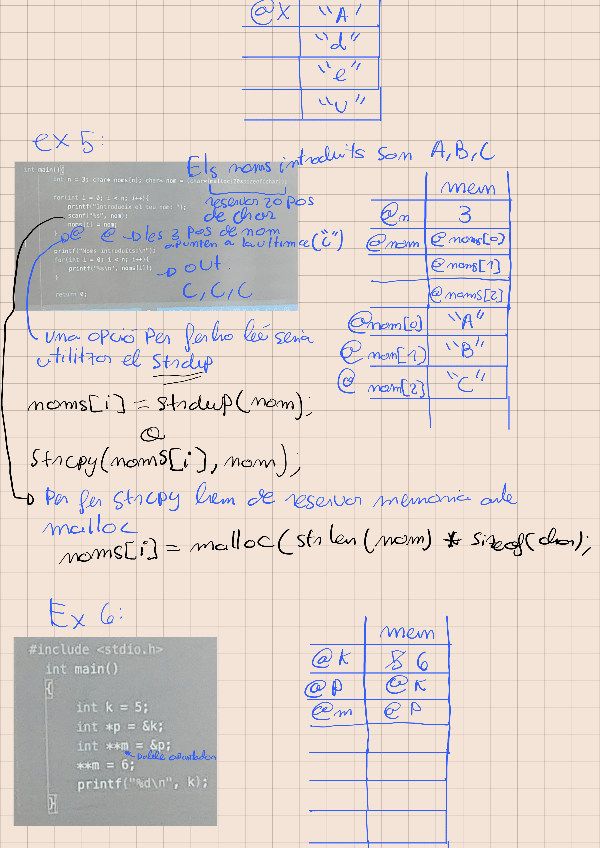 @X "A"
"d"
"e"
"u"
ex 5:
Els noms introduits son A,B,C
int main(){
int n = 3; char* noms[n]; char* nom =
reservar 20 pos
de char
for(int i = 0; i < n; i++){
printf("Introdueix el teu nom: ");
scanf("%s", nom);
noms[i] = nom;
}
les 3 pos de nom
apunten a la ultima ("C")
printf("Noms introduits:\n");
for(int i = 0; i < n; i++){
printf("%s\n", noms[i]);
}
out:
C, C, C
return 0;
mem
@n 3
@nom @noms[0]
@noms[1]
@noms[2]
@nom[0] "A"
@nom[1] "B"
@nom[2] "C"
una opció per ferho bé seria
utilitzar el Strdup
noms[i] = strdup(nom);
O
Strcpy(noms[i], nom);
Per fer strcpy hem de reservar memoria amb
malloc
noms[i] = malloc(strlen(nom) * sizeof(char);
Ex 6:
#include <stdio.h>
int main()
{
int k = 5;
int *p = &k;
int **m = &p;
doble apuntador
**m = 6;
printf("%d\n", k);
}
mem
@K 5 6
@P @K
@m @P